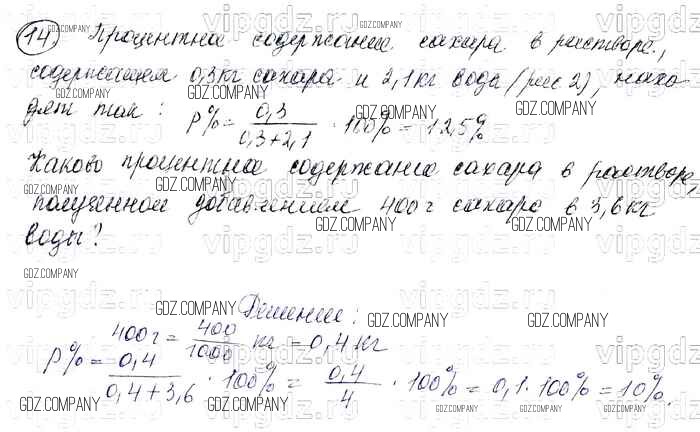 14. Процентное содержание сахара в растворе,
содержащем 0,3 кг сахара и 2,1 кг воды (рис 2), нахо-
дят так: p% = 0,3 / 0,3+2,1 · 100% = 12,5%
Каково процентное содержание сахара в растворе,
полученном добавлением 400 г сахара в 3,6 кг
воды?
Решение:
400 г = 400 / 1000 кг = 0,4 кг
p% = 0,4 / 0,4+3,6 · 100% = 0,4 / 4 · 100% = 0,1 · 100% = 10%.
GDZ.COMPANY
vipgdz.ru